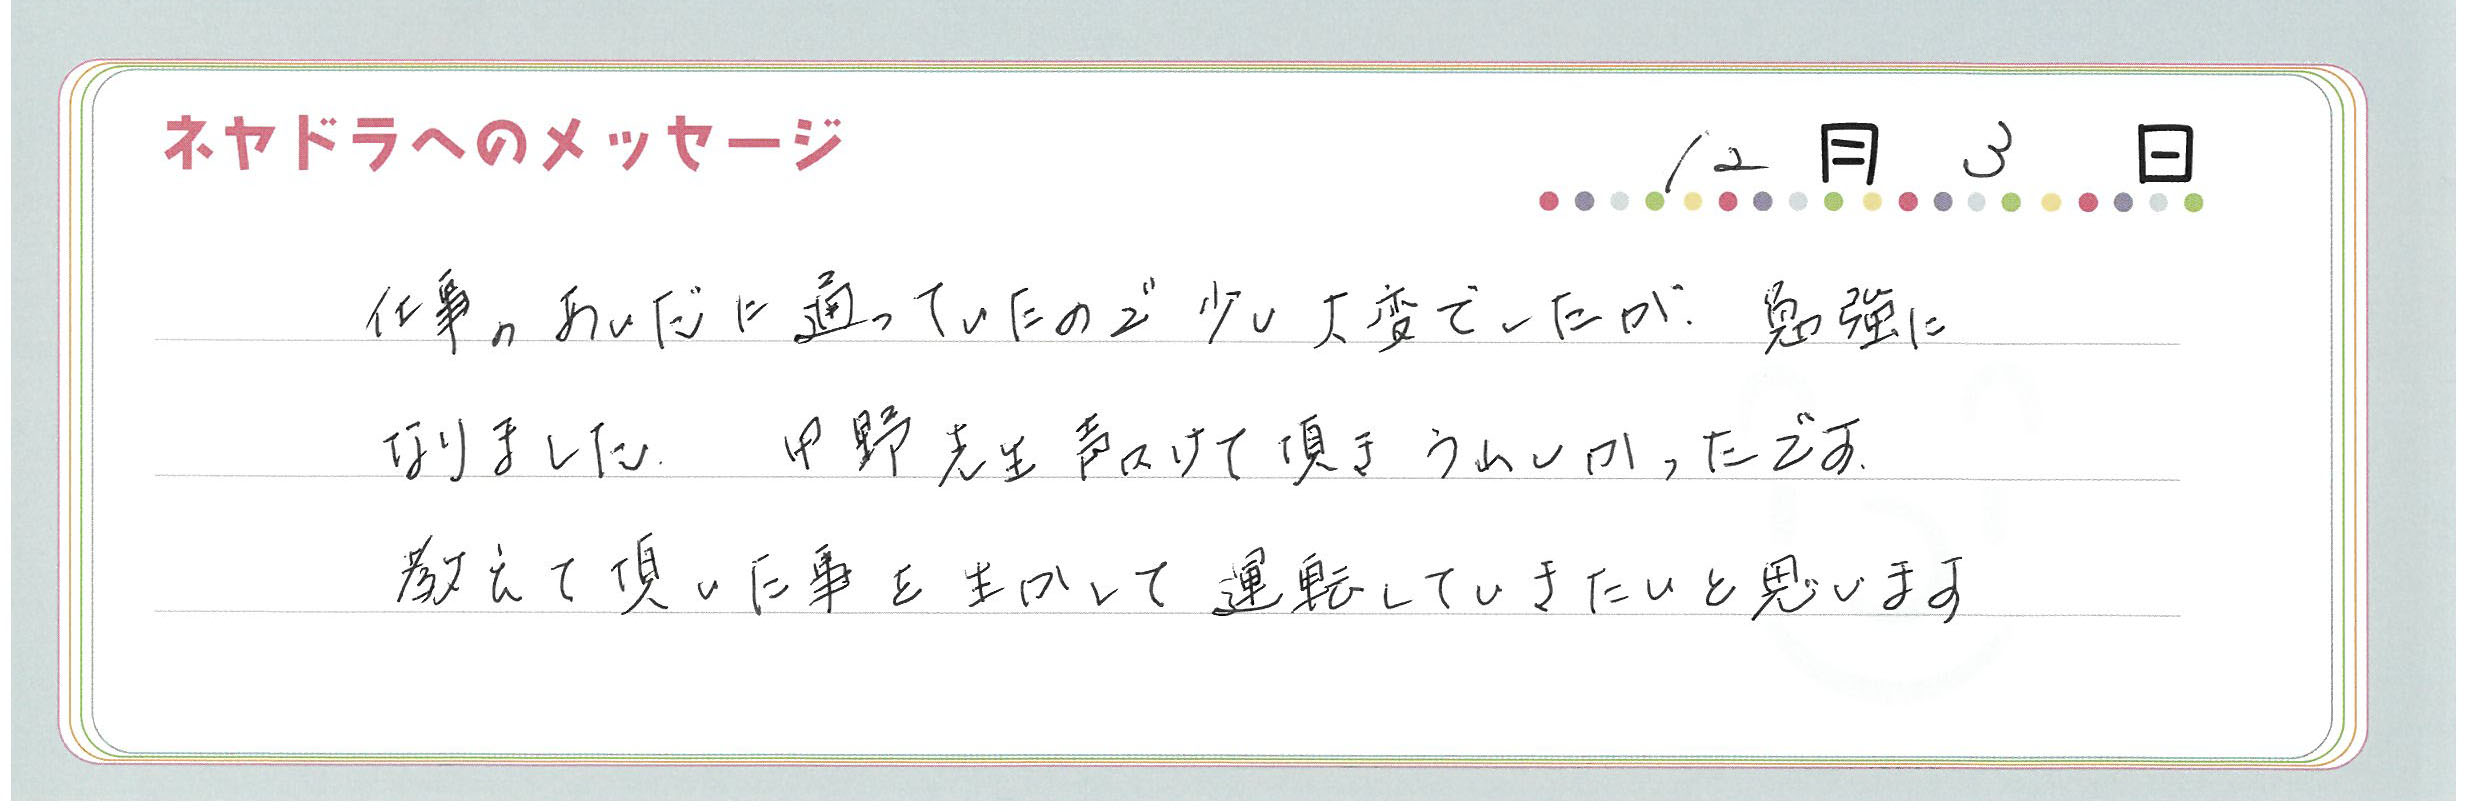 ネヤドラへのメッセージ
12月3日
仕事のあいだに通っていたので少し大変でしたが、勉強に
なりました。 中野先生声かけて頂きうれしかったです。
教えて頂いた事を生かして運転していきたいと思います